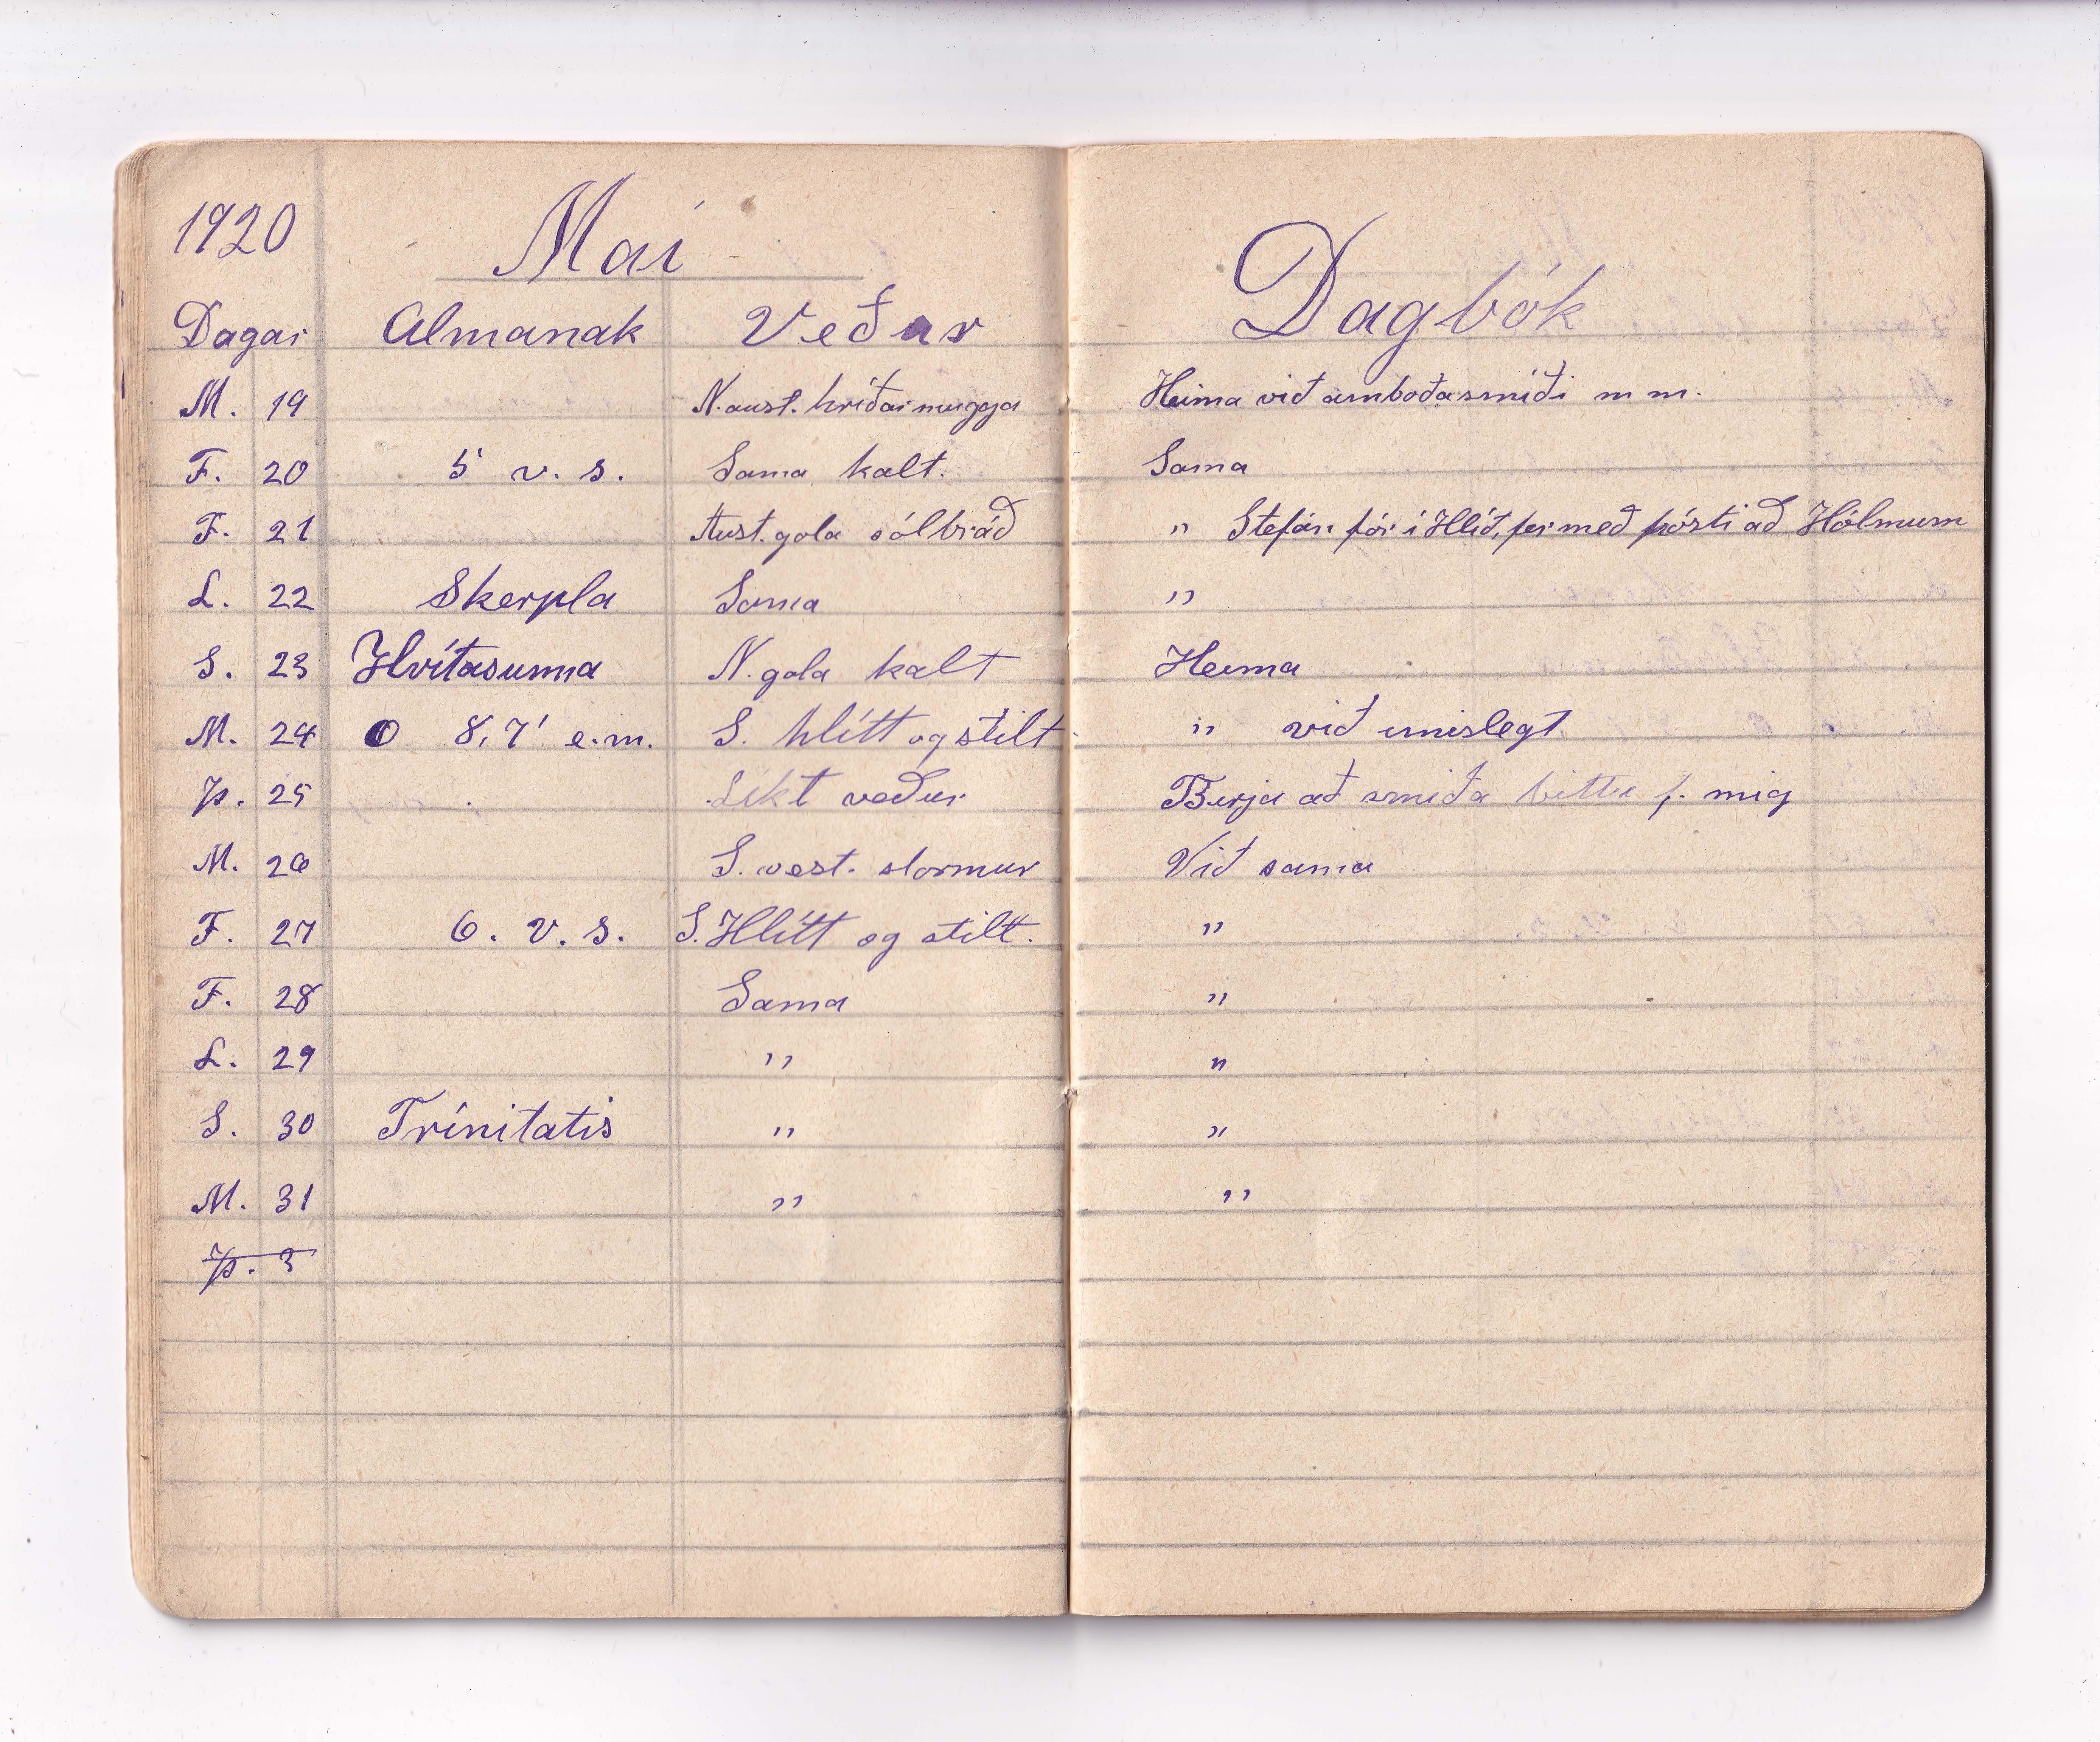 1920 Mai
Dagar Almanak Veður
M. 19 N.aust. hríðarmugga
F. 20 5 v. s. Sama kalt.
F. 21 Aust.gola sólbráð
L. 22 Skerpla Sama
S. 23 Hvítasunna N.gola kalt
M. 24 8,7' e.m. S. hlítt og stilt
Þ. 25 Líkt veður
M. 26 S.vest. stormur
F. 27 6. v. s. S.Hlítt og stilt.
F. 28 Sama
L. 29 "
S. 30 Trínitatis "
M. 31 "
Þ. 3
Dagbók
Heima við amboðasmíði m m.
Sama
" Stefán fór í Hlíð, fer með pósti að Hólmum
"
Heima
" við imislegt
Birja að smíða f. mig
Við sama
"
"
"
"
"